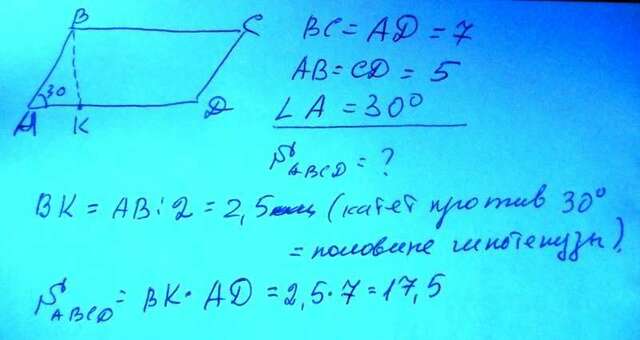 B C
BC = AD = 7
AB = CD = 5
30
A K D
∠A = 30°
S ABCD = ?
BK = AB : 2 = 2,5 (катет против 30°
= половине гипотенузы).
S ABCD = BK · AD = 2,5 · 7 = 17,5